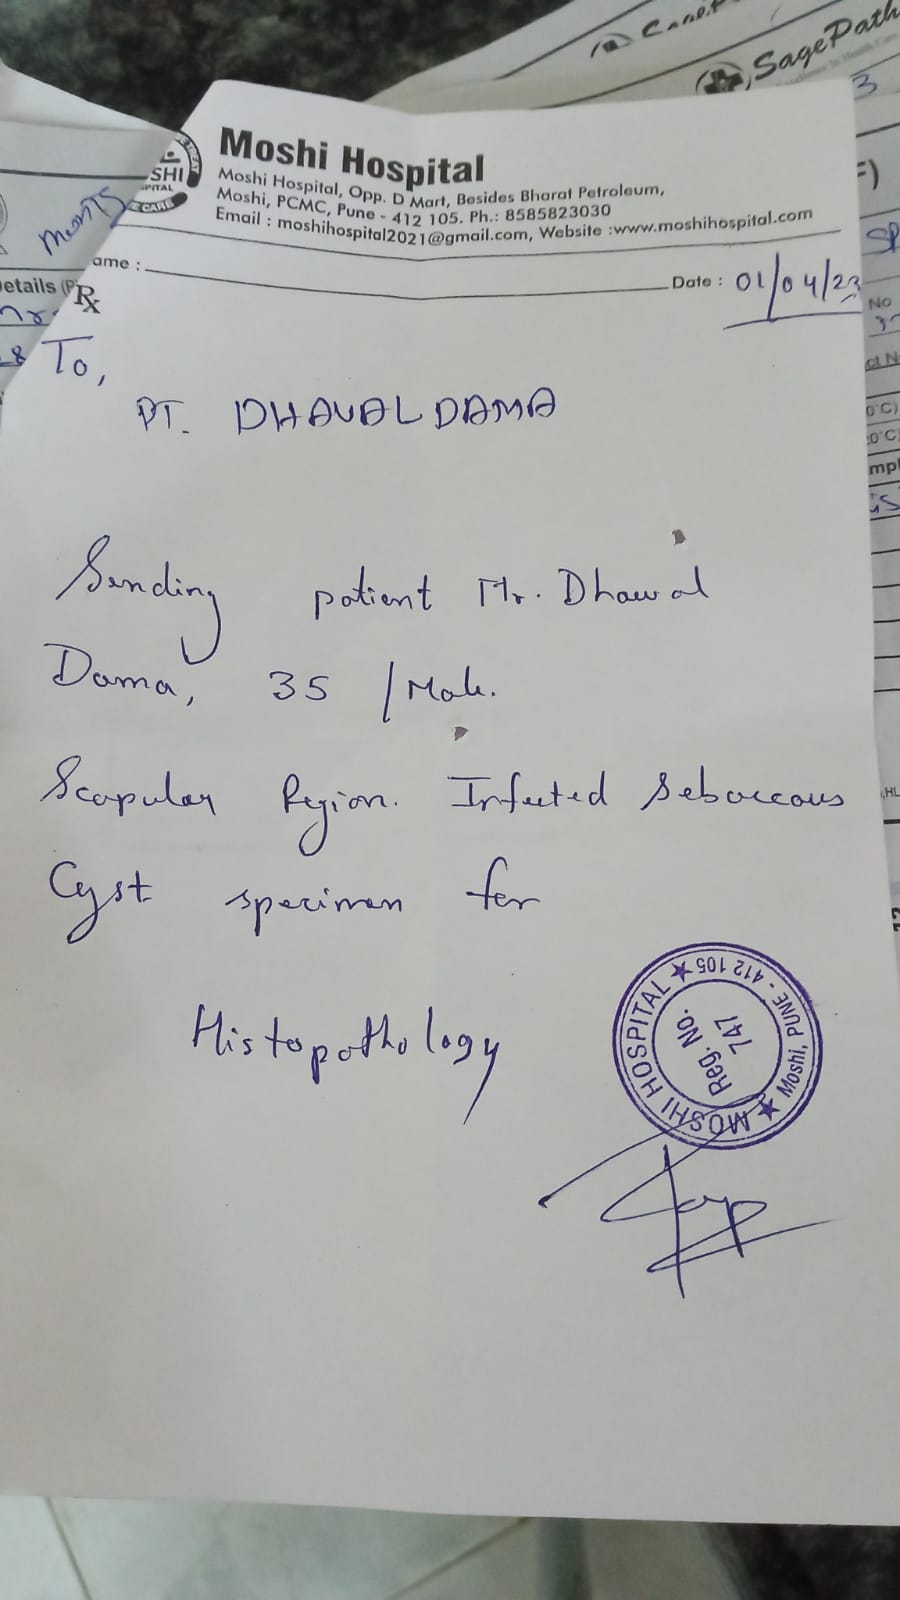 SagePath
Moshi Hospital
Moshi Hospital, Opp. D Mart, Besides Bharat Petroleum,
Moshi, PCMC, Pune - 412 105. Ph.: 8585823030
Email : moshihospital2021@gmail.com, Website :www.moshihospital.com
SHI
PITAL
CARE
ame :
Date : 01/04/23
etails (P
Rx
To,
PT. DHAVAL DAMA
Sending patient Mr. Dhawal
Dama, 35 /Male.
Scapular Region. Infected Sebaceous
Cyst specimen for
Histopathology
MOSHI HOSPITAL ★ Moshi, PUNE - 412 105 ★
Reg. No.
747
No
0°C)
0°C)
mpl